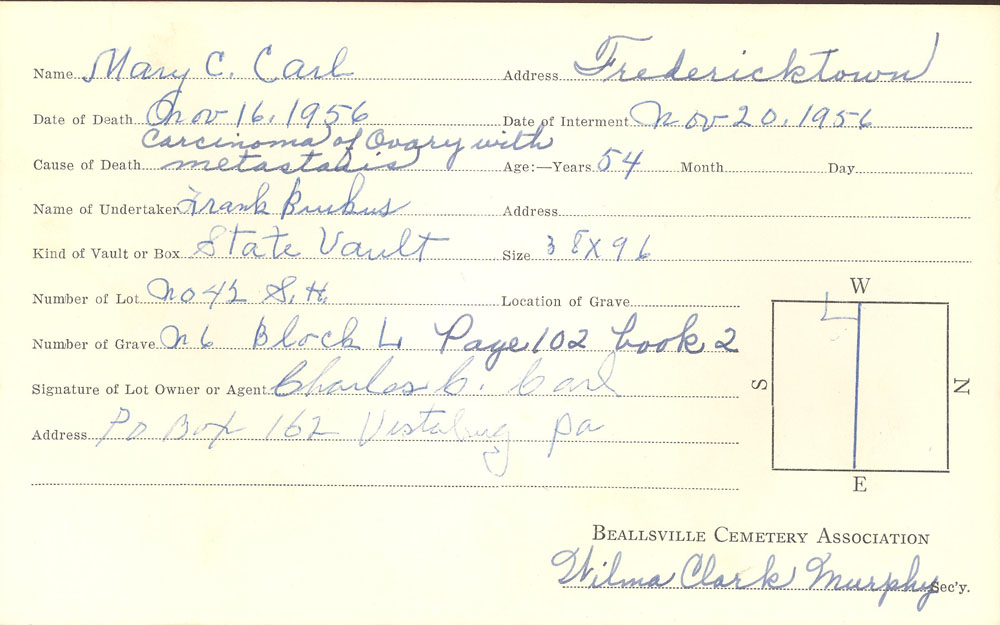 Name Mary C. Carl Address Fredericktown
Date of Death Nov 16, 1956 Date of Interment Nov 20, 1956
Carcinoma of Ovary with
Cause of Death metastasis Age:—Years 54 Month Day
Name of Undertaker Frank Burkus Address
Kind of Vault or Box State Vault Size 38 X 96
Number of Lot No 42 S.H. Location of Grave
Number of Grave N 6 Block L Page 102 book 2
Signature of Lot Owner or Agent Charles C. Carl
Address Po Box 162 Vestaburg Pa
W
S
N
E
Beallsville Cemetery Association
Wilma Clark Murphy Sec'y.